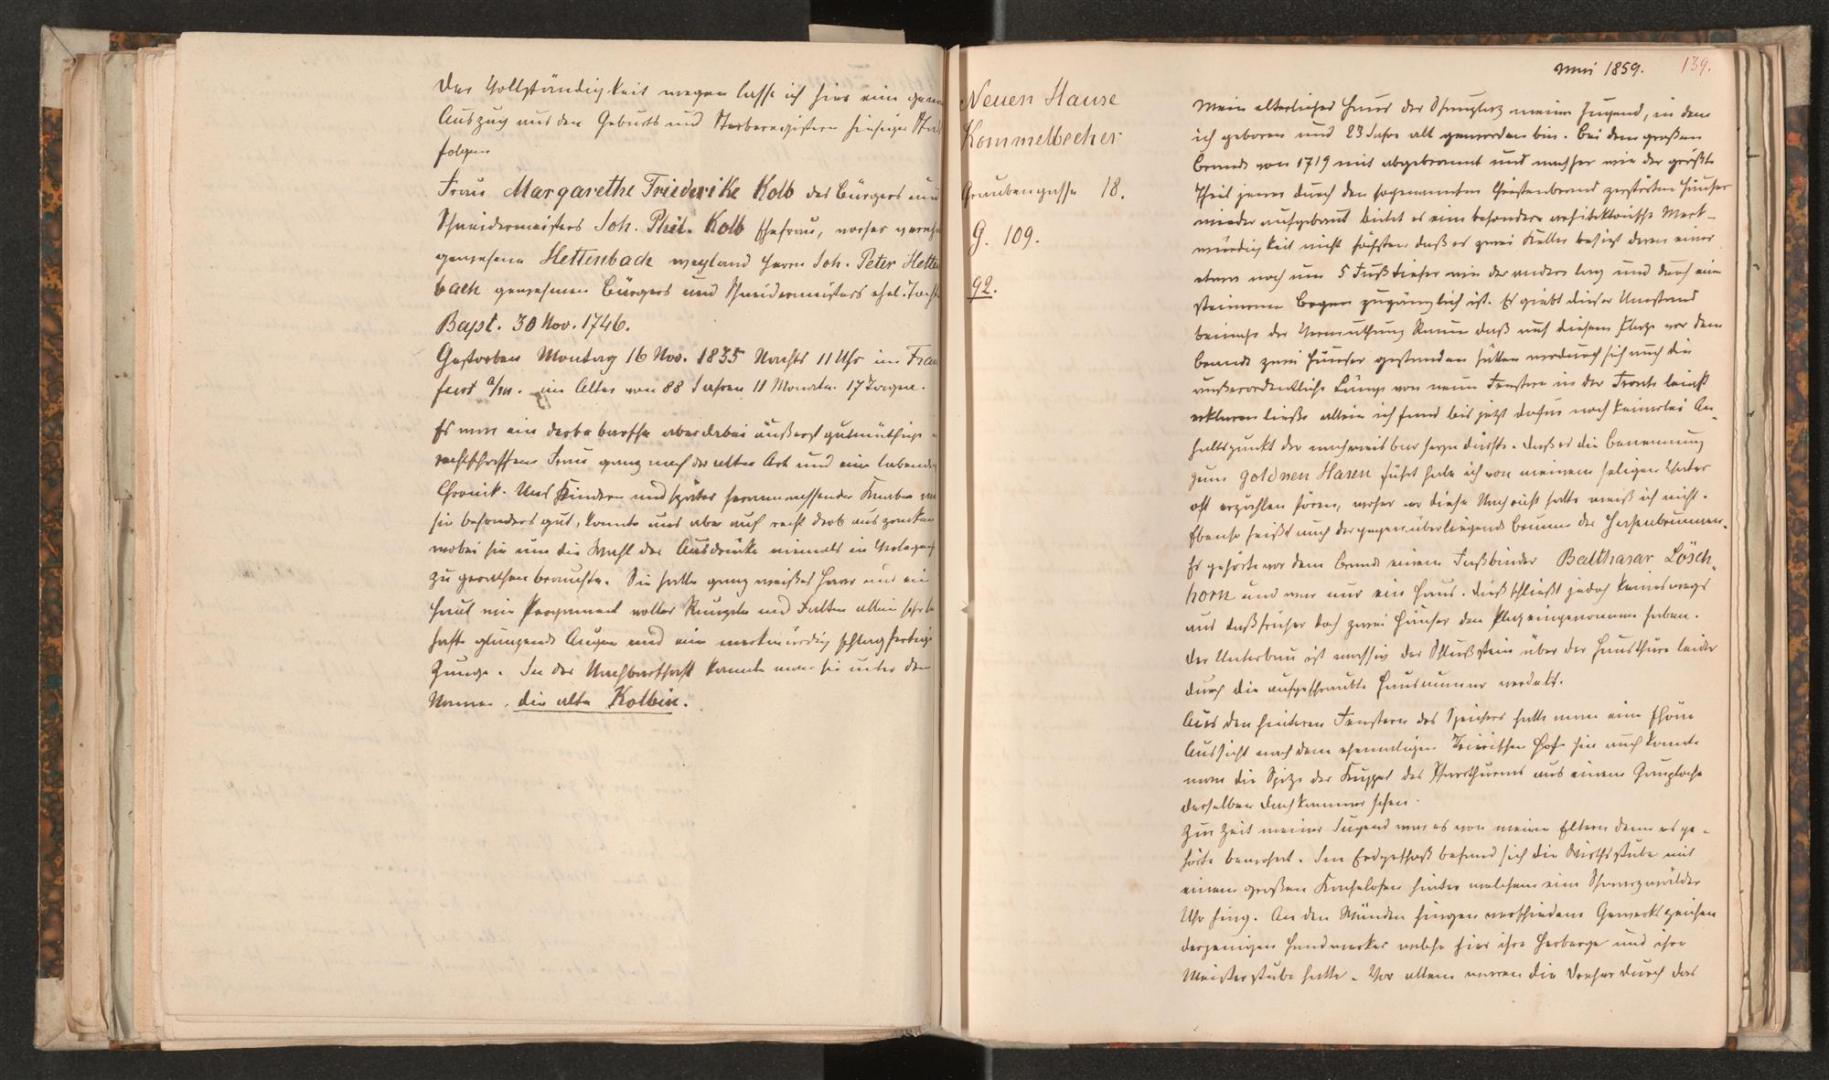 Der Vollständigkeit wegen lasse ich hier einen genauen
Auszug aus den Geburts und Sterberegistern hiesiger Stadt
folgen
Frau Margarethe Friederike Kolb des Bürgers und
Schneidermeisters Joh. Phil. Kolb Ehefrau, vorher verehe
gewesene Hettenbach weyland Herrn Joh. Peter Hetten
bach gewesenen Bürgers und Schneidermeisters ehel. Tochter
Bapt. 30 Nov. 1746.
Gestorben Montag 16 Nov. 1835 Nachts 11 Uhr in Frank
furt a/m. im Alter von 88 Jahren 11 Monaten 17 Tagen.
Es war eine derbe barsche aber dabei äußerst gutmüthige
rechtschaffene Frau ganz nach der alten Art und eine lebende
Chronik. Uns Kindern und später heranwachsenden Knaben war
sie besonders gut, konnte uns aber auch recht derb auszanken
wobei sie um die Wahl der Ausdrücke niemals in Verlegenheit
zu gerathen brauchte. Sie hatte ganz weißes Haar und eine
Haut wie Pergament voller Runzeln und Falten allein sehr leb
hafte glänzende Augen und eine merkwürdig schlagfertige
Zunge. In der Nachbarschaft kannte man sie unter dem
Namen, die alte Kolbin.
Neuen Hause
Kommelbecher
Graubengasse 18.
G. 109.
92.
Mai 1859. 139.
Mein elterliches Haus der Schauplatz meiner Jugend, in dem
ich geboren und 23 Jahre alt geworden bin. Bei dem großen
Brande von 1719 mit abgebrannt und nachher wie der größte
Theil jener durch den sogenannten Christenbrand zerstörten Häuser
wieder aufgebaut bietet es eine besondere architektonische Merk-
würdigkeit nicht höchstens daß es zwei Keller besizt deren einer
etwa noch um 5 Fuß tiefer wie der andere lag und durch eine
steinernen Bogen zugänglich ist. Es giebt dieser Umstand
beinahe der Vermuthung Raum daß auf diesem Platze vor dem
Brande zwei Häuser gestanden hätten wodurch sich auch die
außerordentliche Länge von neun Fenstern in der Fronte leicht
erklären ließe allein ich fand bis jetzt dafür noch keinerlei An-
haltspunkt der nachweisbar seyn dürfte. Daß es die Benennung
zum goldnen Hasen führt habe ich von meinem seligen Vater
oft erzählen hören, woher er diese Nachricht hatte weiß ich nicht.
Ebenso heißt auch der gegenüberliegende Brunnen der Hasenbrunnen.
Es gehörte vor dem Brande einem Faßbinder Balthasar Lösch-
horn und war nur ein Haus. Dieß schließt jedoch keineswegs
aus daß früher doch zwei Häuser den Platz eingenommen haben.
Der Unterbau ist massiv der Schlußstein über der Hausthüre leider
durch die aufgeschraubte Hausnummer verdekt.
Aus den hinteren Fenstern des Speichers hatte man eine schöne
Aussicht nach dem ehemaligen Trierischen Hofe hin auch konnte
man die Spitze der Kuppel des Pfarrthurms aus einem Gauploche
derselben Dachkammer sehen.
Zur Zeit meiner Jugend war es von meinen Eltern denen es ge-
hörte bewohnt. Im Erdgeschoß befand sich die Wirthsstube mit
einem großen Kachelofen hinter welchem eine Schwarzwälder
Uhr hing. An den Wänden hingen verschiedene Gewerkszeichen
derjenigen Handwerker welche hier ihre Herberge und ihre
Meisterstube hatte. Vor allem waren die Dreher durch das